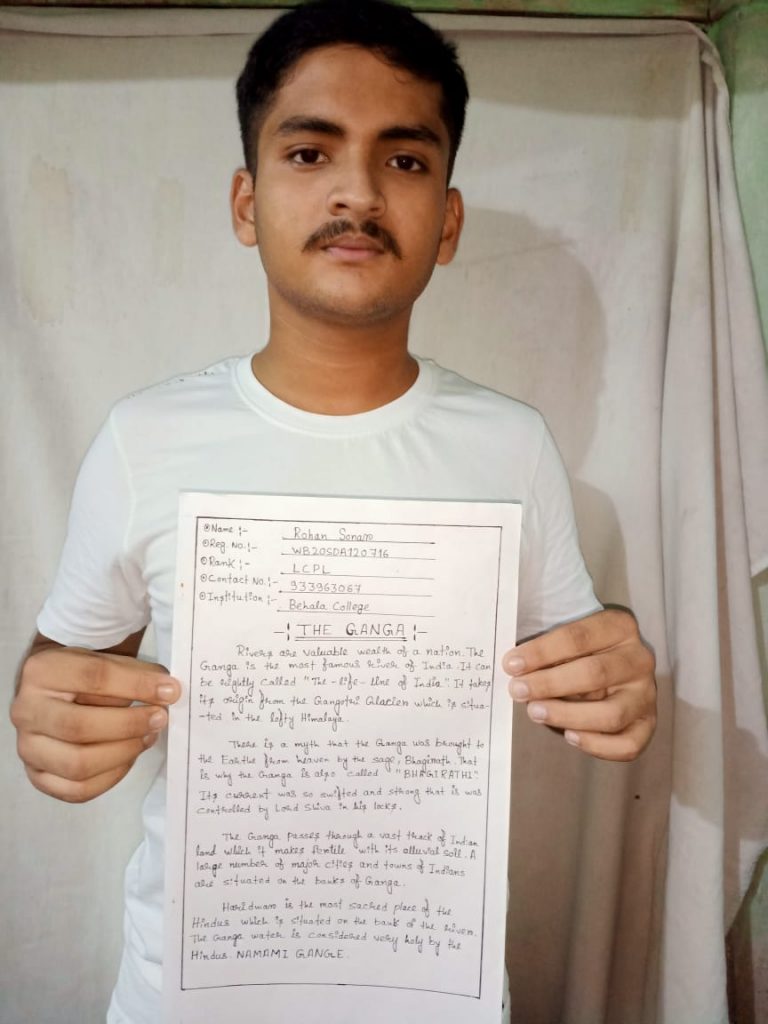 Name :- Rohan Sonam
Reg. No. :- WB20SDA120716
Rank :- LCPL
Contact No. :- 933963067
Institution :- Behala College
-: THE GANGA :-
Rivers are valuable wealth of a nation. The
Ganga is the most famous river of India. It can
be rightly called "The - life - line of India". It takes
its origin from the Gangotri Glacien which is situa-
-ted in the lofty Himalaya.
There is a myth that the Ganga was brought to
the Earthe from heaven by the sage, Bhagirath. That
is why the Ganga is also called "BHAGIRATHI".
Its current was so swifted and strong that is was
controlled by Lord Shiva in his locks.
The Ganga passes through a vast track of Indian
land which it makes fertile with its alluvial soil. A
large number of major cities and towns of Indians
are situated on the banks of Ganga.
Haridwar is the most sacred place of the
Hindus which is situated on the bank of the river.
The Ganga water is considered very holy by the
Hindus. NAMAMI GANGE.